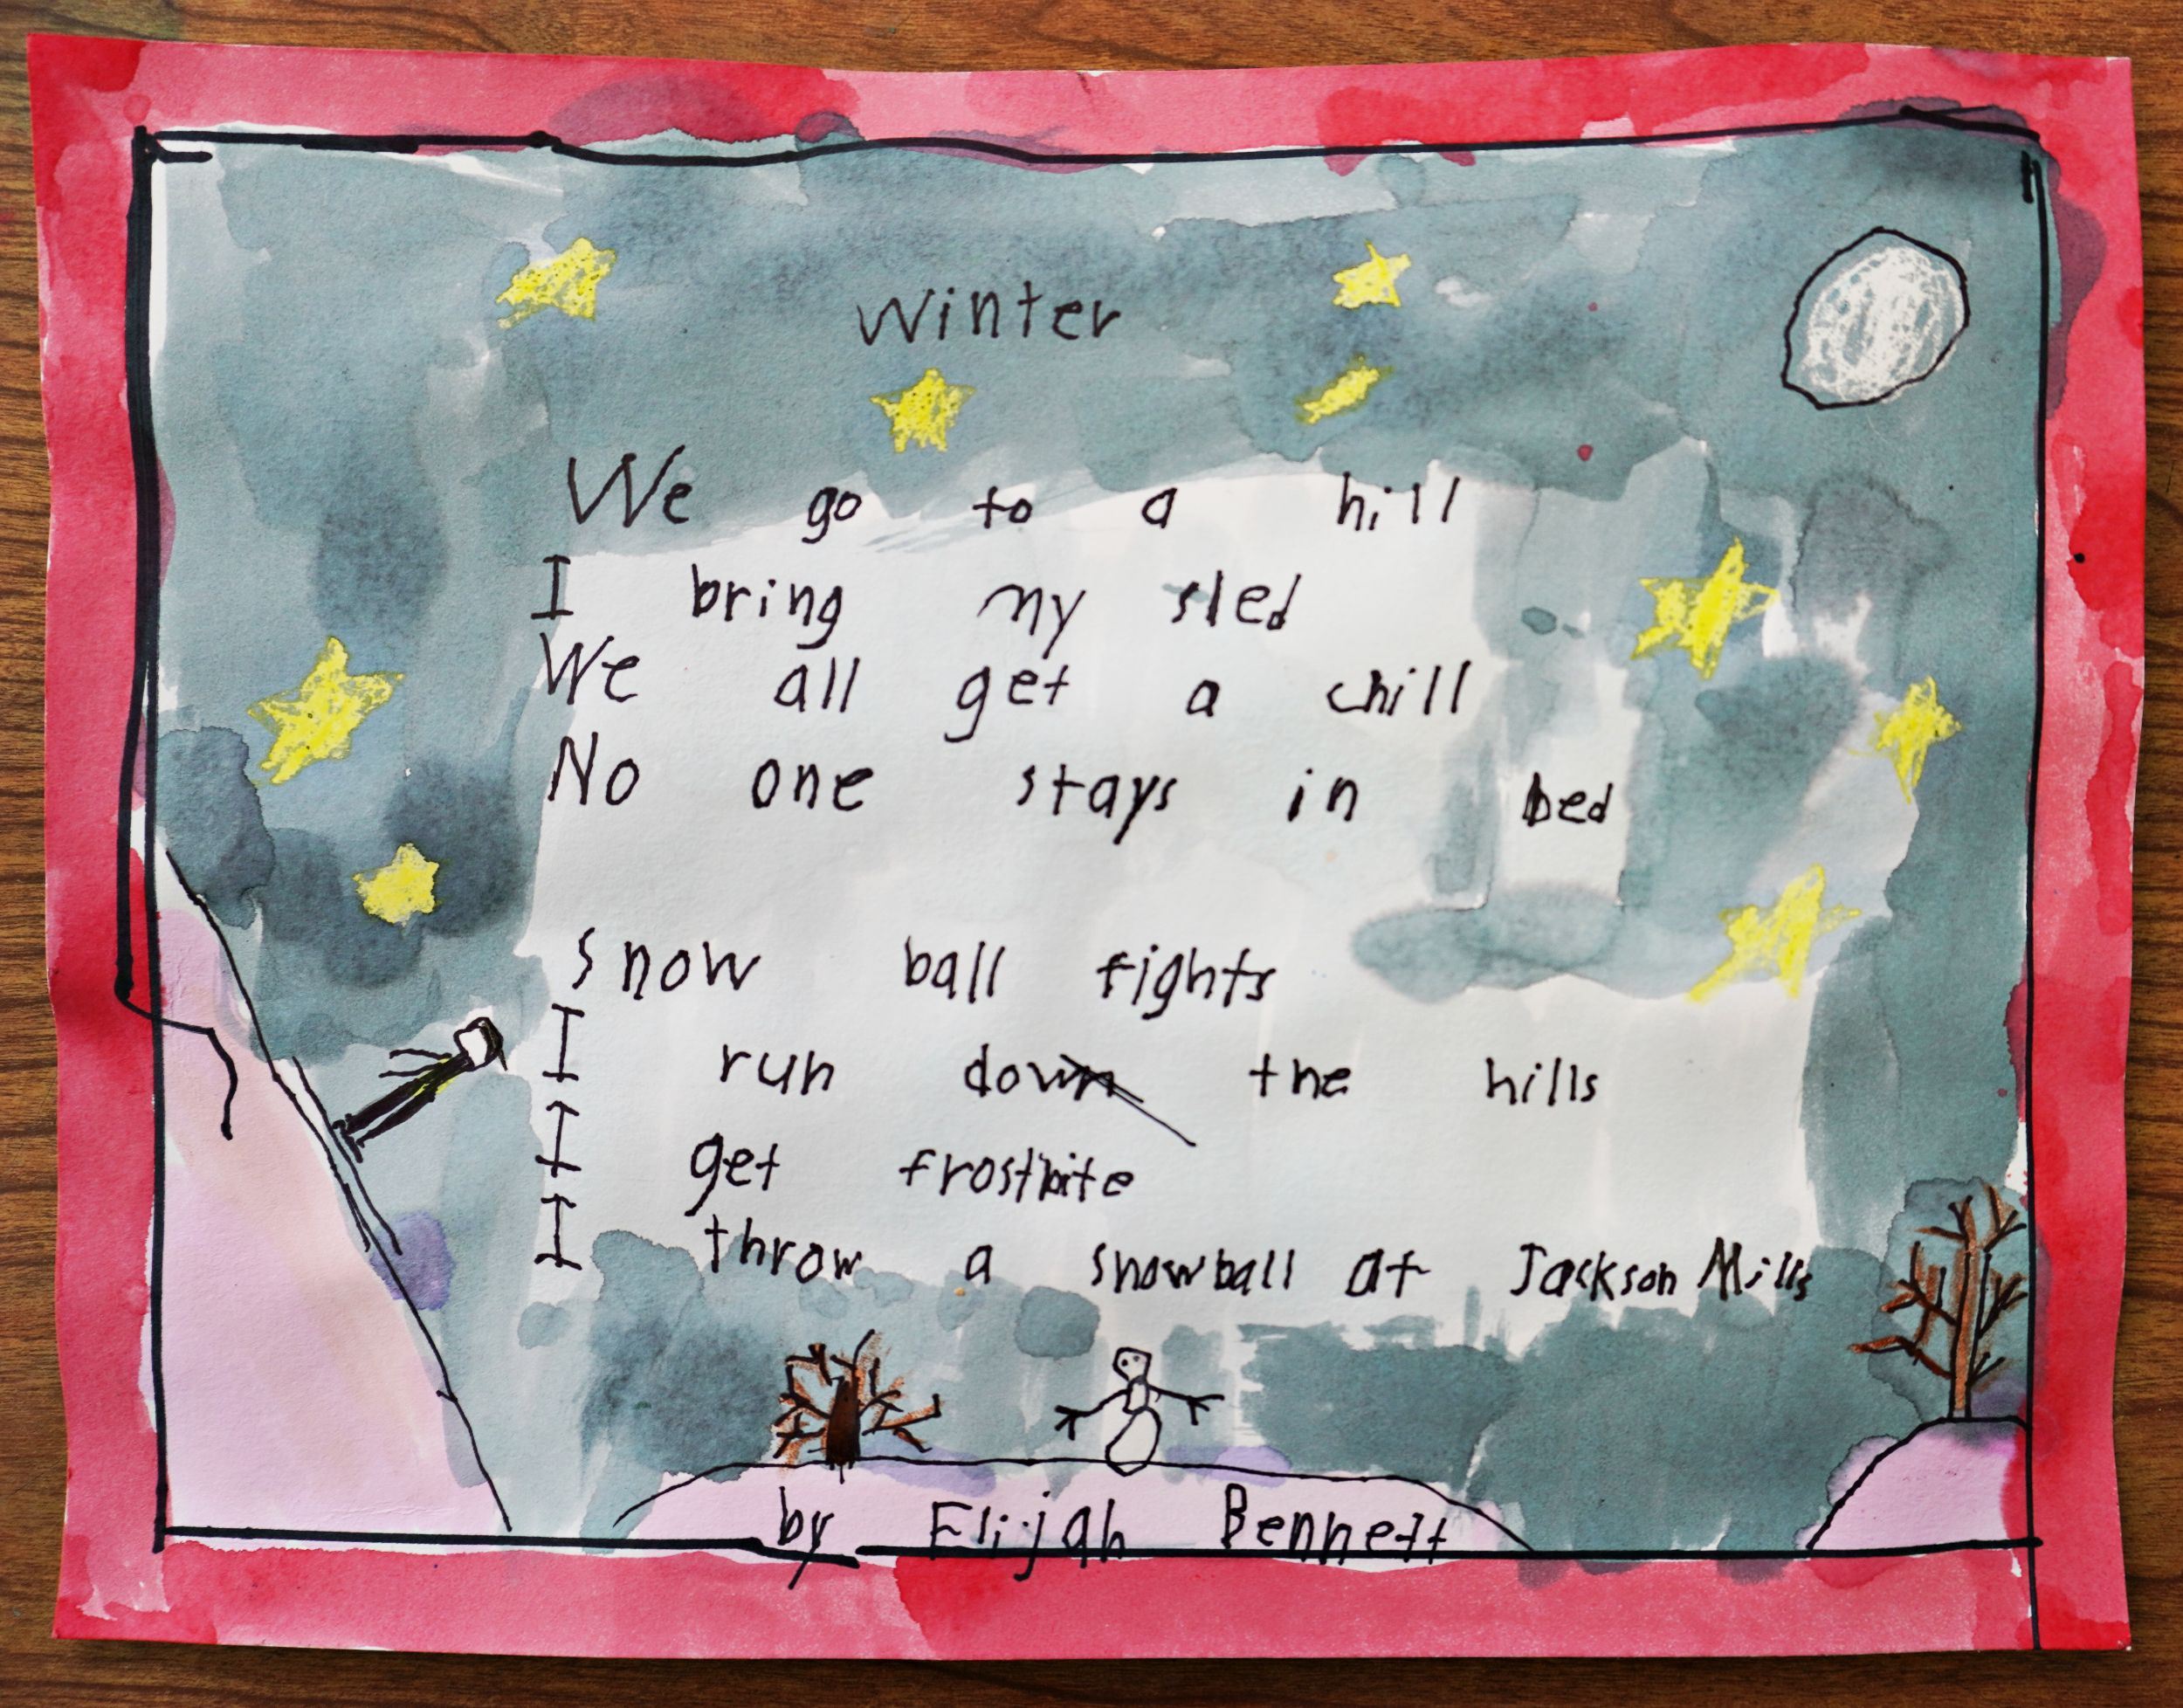 Winter
We go to a hill
I bring my sled
We all get a chill
No one stays in bed
Snow ball fights
I run down the hills
I get frostbite
I throw a snowball at Jackson Mills
by Elijah Bennett